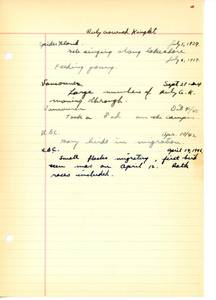 Ruby crowned Kinglet
Spider Island July 5, 1939
still singing along lakeshore
July 6, 1939
Feeding young.
Vancouver Sept 21-24
Large numbers of Ruby C. K.
moving through.
Vancouver Oct
Took a on the campus
U.B.C. Apr. 10/42
Many birds in migration
U.B.C. April 17, 1942
Small flocks migrating, first bird
seen was on April 12. Both
races included.